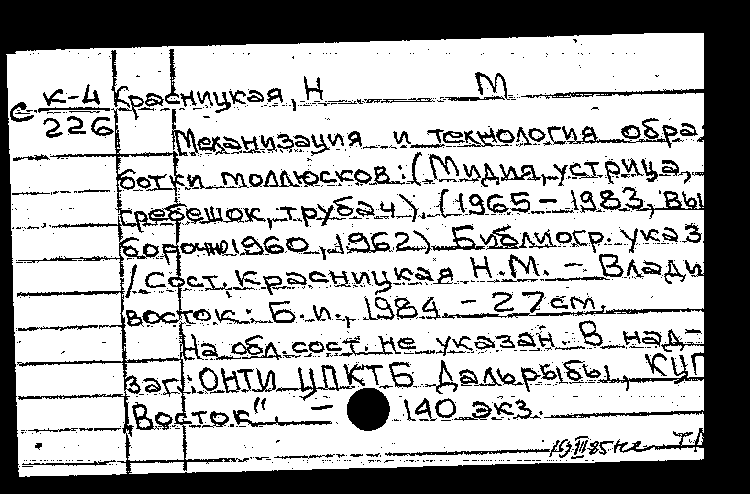 с К-4 Красницкая, Н М
226
Механизация и технология обра
ботки моллюсков: (Мидия, устрица,
гребешок, трубач). (1965 – 1983, вы
борочно 1960, 1962). Библиогр. указ
/ Сост. Красницкая Н.М. – Влади
восток: Б.и., 1984. – 27 см.
На обл. сост. не указан. В над-
заг.: ОНТИ ЦПКТБ Дальрыбы, КЦП
"Восток". – 140 экз.